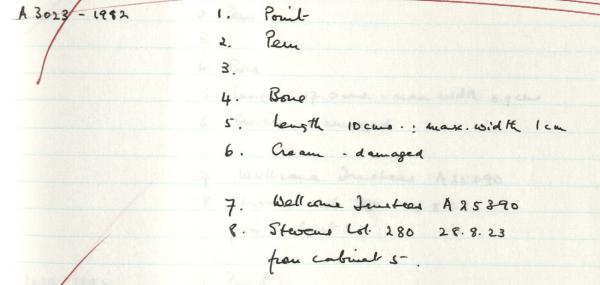 A 3023 - 1982
1. Point
2. Peru
3.
4. Bone
5. Length 10cms. : max. width 1 cm
6. Cream - damaged
7. Wellcome Trustees A 25390
8. Stevens Lot. 280 28.8.23
from cabinet 5.